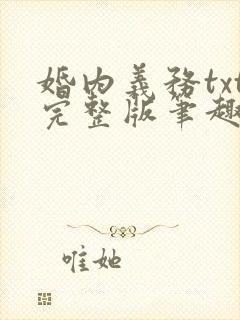 婚内義務txt
完整版筆趣
唯她